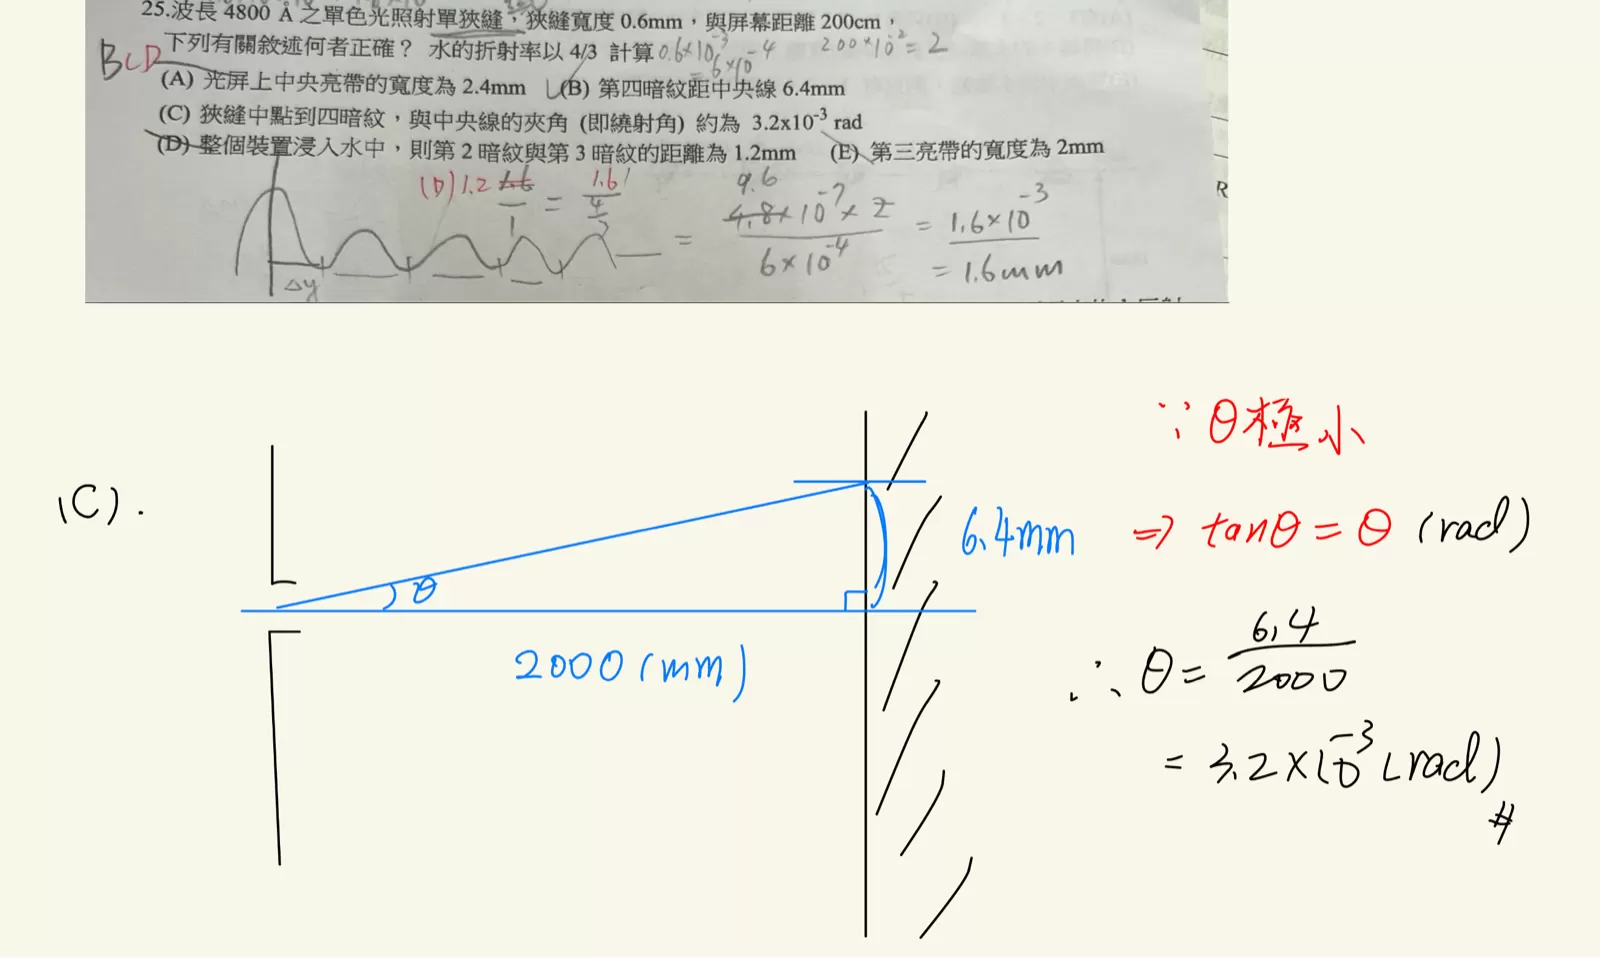 25.波長 4800 Å 之單色光照射單狹縫，狹縫寬度 0.6mm，與屏幕距離 200cm，
下列有關敘述何者正確？ 水的折射率以 4/3 計算
0.6×10⁻³
= 6×10⁻⁴
200×10⁻² = 2
BCD
(A) 光屏上中央亮帶的寬度為 2.4mm (B) 第四暗紋距中央線 6.4mm
(C) 狹縫中點到四暗紋，與中央線的夾角 (即繞射角) 約為 3.2x10⁻³ rad
(D) 整個裝置浸入水中，則第 2 暗紋與第 3 暗紋的距離為 1.2mm (E) 第三亮帶的寬度為 2mm
(D) 1.2 1.6/1 = 1.6/(4/3)
Δy
= 9.6 4.8×10⁻⁷×2 / 6×10⁻⁴ = 1.6×10⁻³
= 1.6mm
R
(C).
θ
2000 (mm)
6.4mm
∵ θ極小
⇒ tanθ = θ (rad)
∴ θ = 6.4/2000
= 3.2×10⁻³ (rad)
#